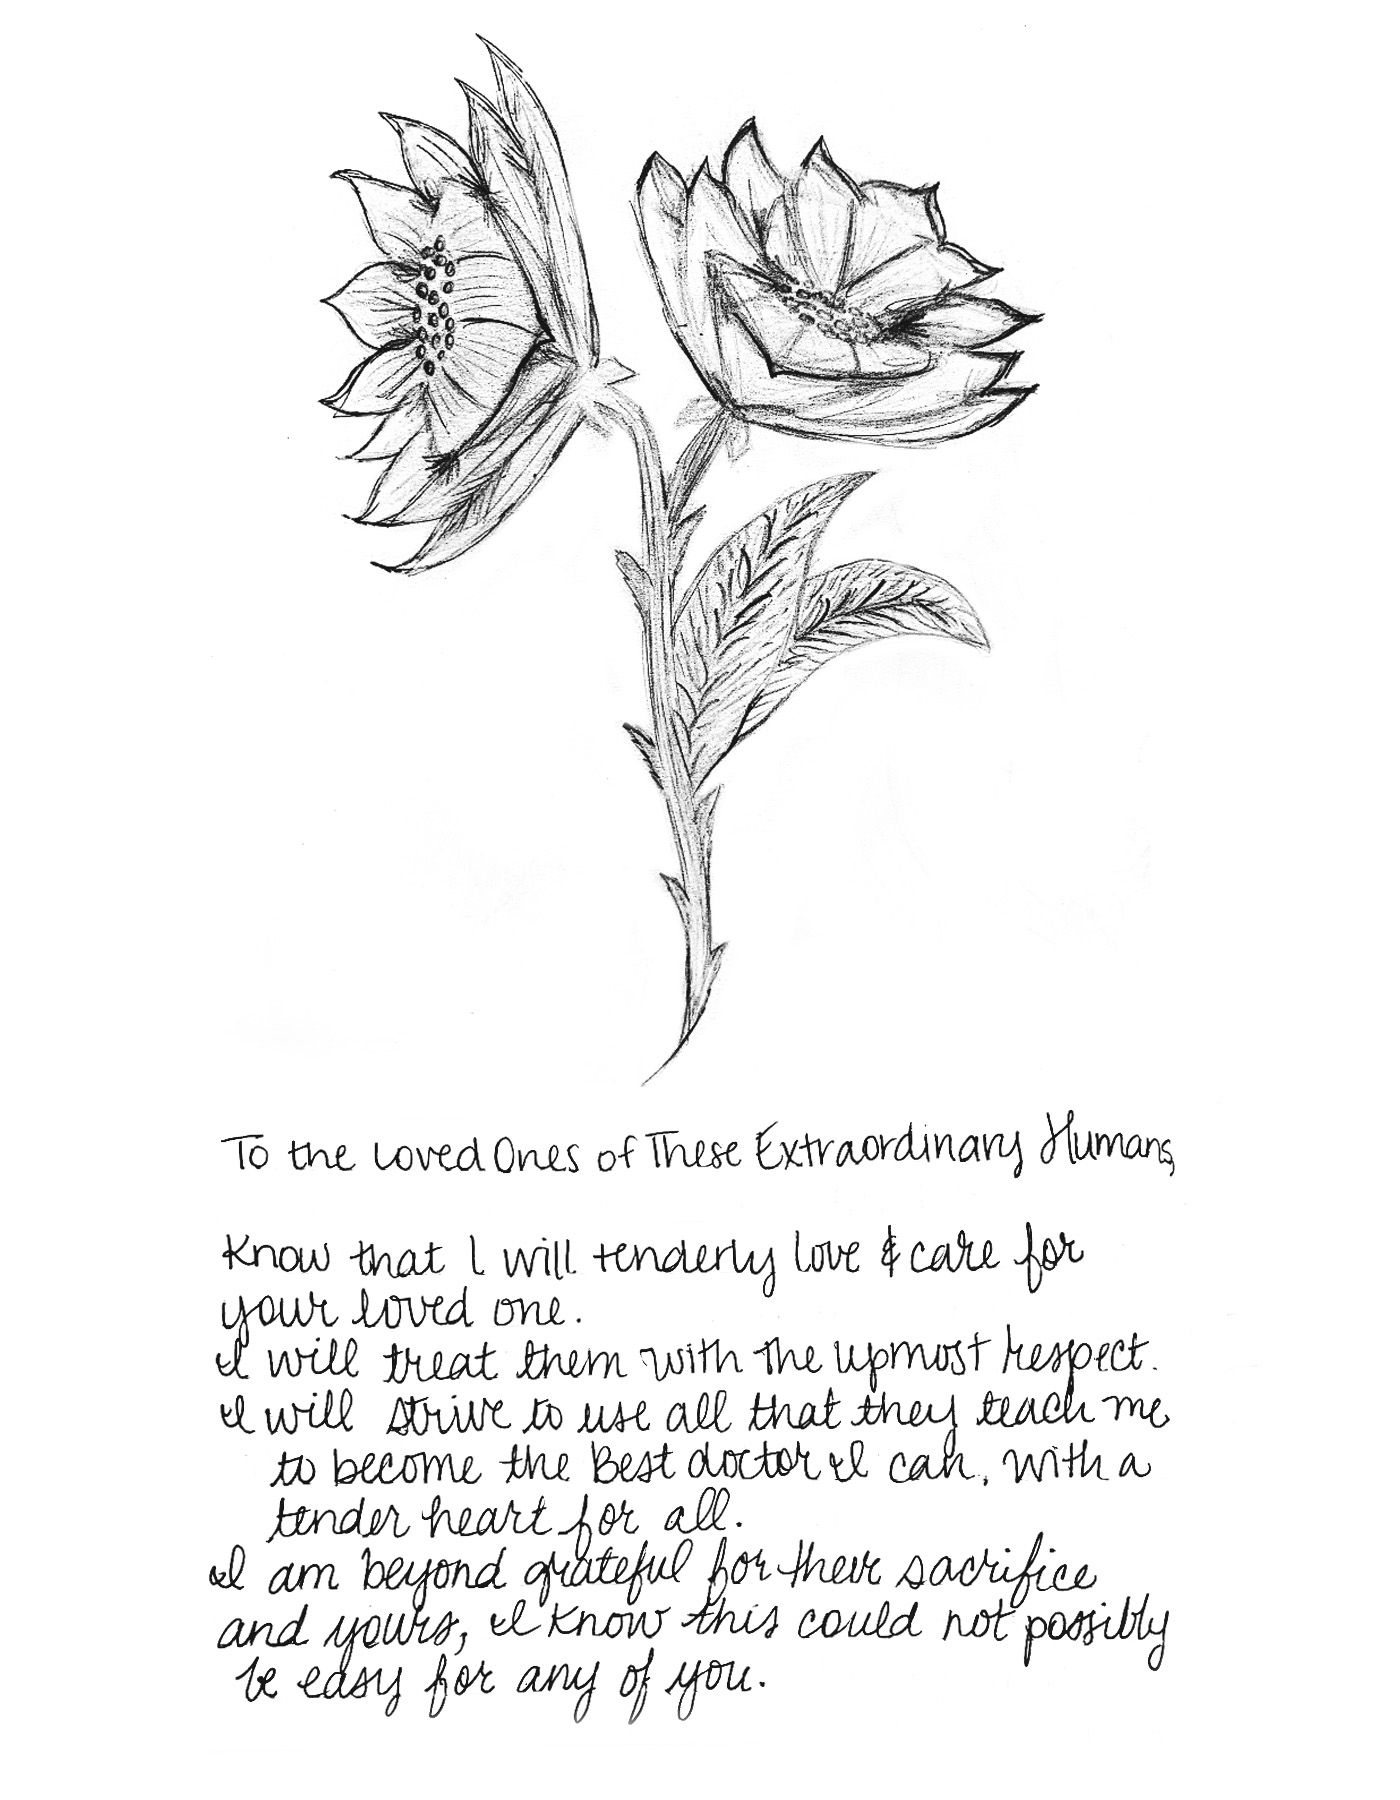 To the Loved Ones of These Extraordinary Humans,
Know that I will tenderly love & care for
your loved one.
I will treat them with the upmost respect.
I will strive to use all that they teach me
to become the Best doctor I can, with a
tender heart for all.
I am beyond grateful for their sacrifice
and yours, I know this could not possibly
be easy for any of you.